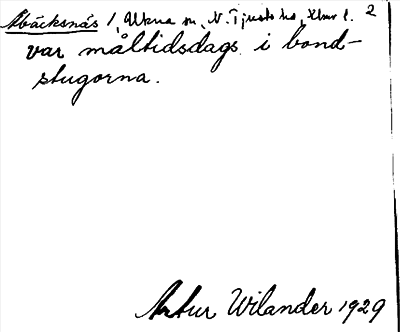 Åbäcksnäs /, Ukna sn, N. Tjusts hd, Klmr l. 2
var måltidsdags i bond-
stugorna.
Artur Wilander 1929